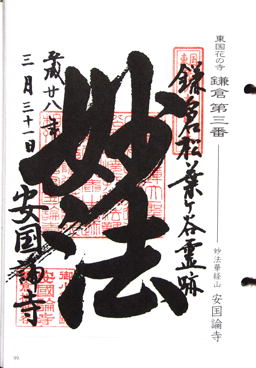 東国花の寺 鎌倉 第三番 妙法華経山 安国論寺
鎌倉松葉ヶ谷霊跡
妙法
平成廿八年
三月三十一日
安国論寺